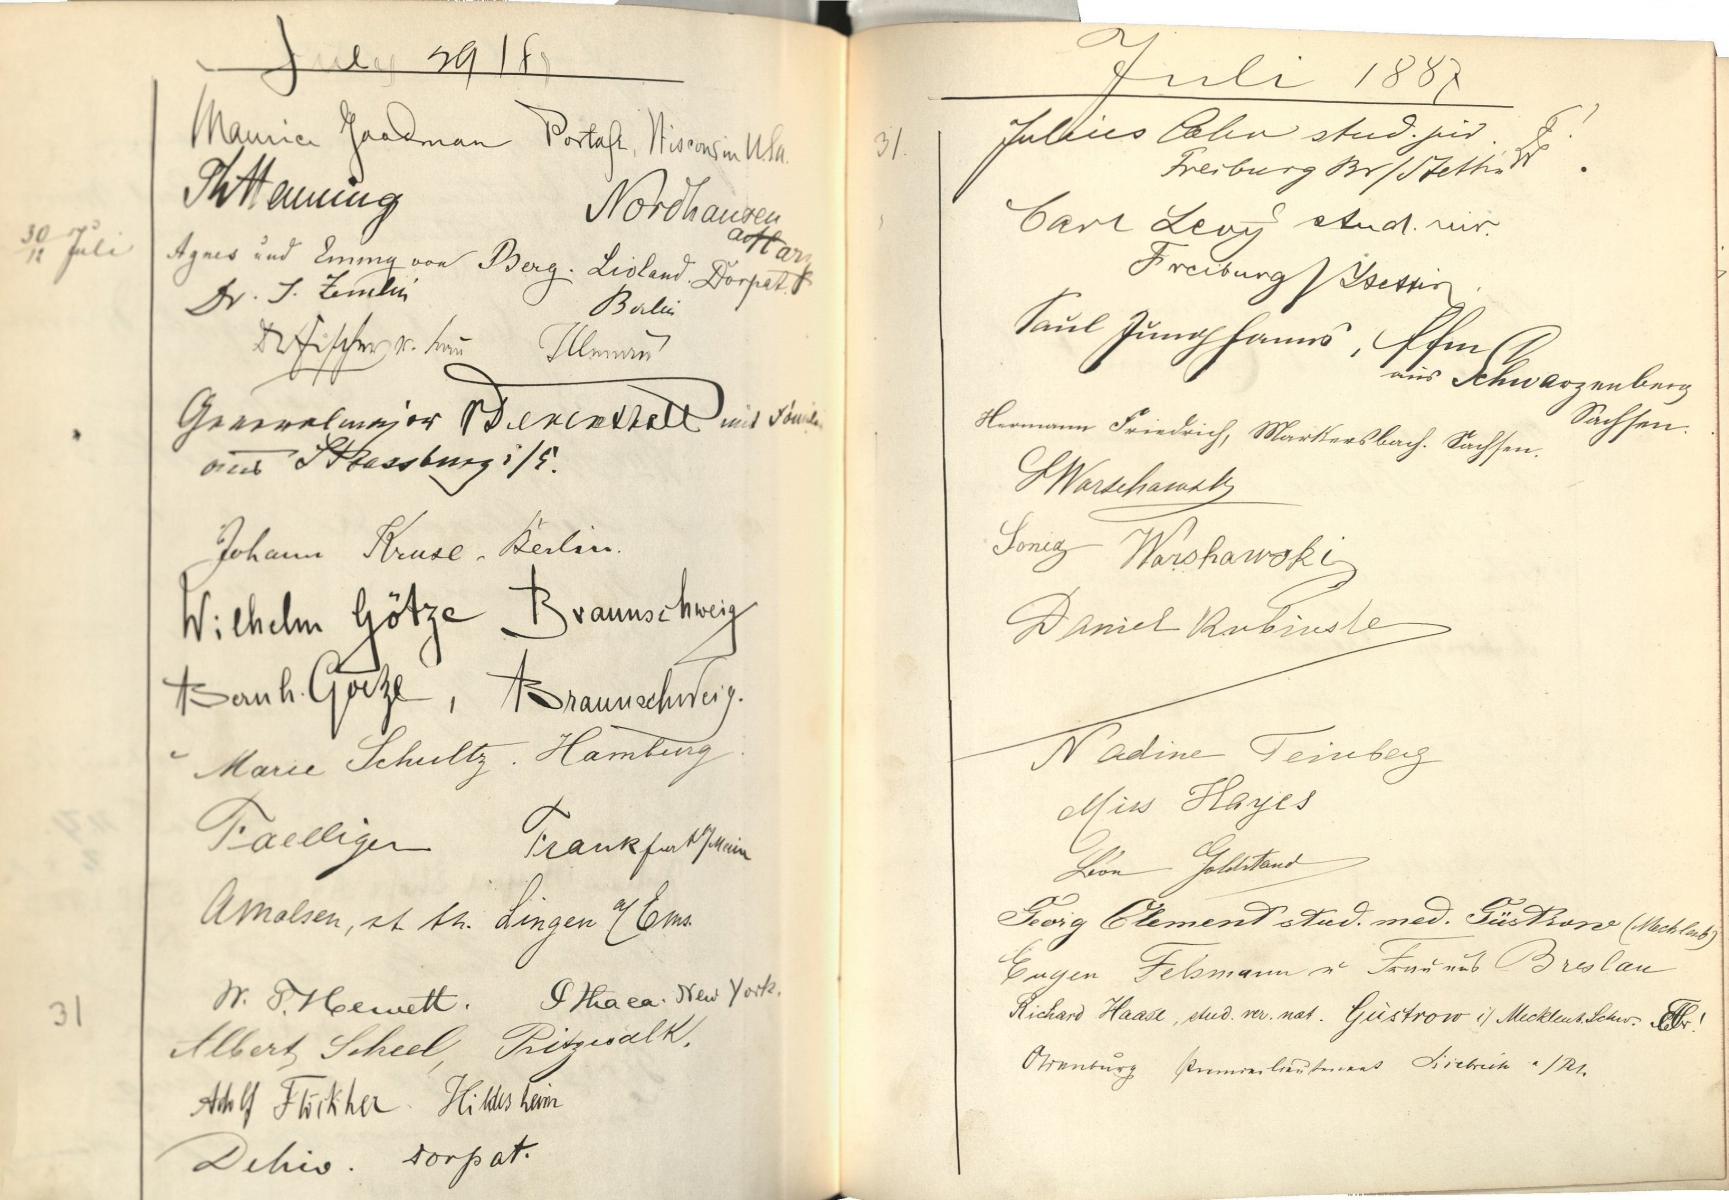 July 29 18
Maurice Goodman Portage, Wisconsin U.S.a.
Th Henning Nordhausen
a/Harz
30 Juli
12
Agnes und Emmy von Berg. Livland. Dorpat.
Dr. S. Zemlin Berlin
Dr Fischer u. Frau Ilmenau
Generalmajor mit Familie
aus Strassburg i/E.
Johann Kruse. Berlin.
Wilhelm Götze Braunschweig
Bernh. Goetze, Braunschweig.
Marie Schultz. Hamburg.
Faelligen Frankfurt a/Main
st. th. Lingen a/Ems.
31
W. T. Hewett. Ithaca. New York.
Albert Scheel, Pritzwalk.
Adolf Flöckher. Hildesheim
Dehio. Dorpat.
Juli 1887
31.
Julius Cohn stud. jur.
Freiburg Br/Stettin
Carl Levy stud. jur.
Freiburg/Stettin.
Paul Junghanns,
aus Schwarzenberg
Sachsen.
Hermann Friedrich, Markersbach. Sachsen.
S Warschawsky
Sonia Warshawski
Daniel Rubinste
Nadine Feinberg
Miss Hayes
Léon Goldstand
Georg Clement stud. med. Güstrow (Mecklenb)
Eugen Felsmann u Frau aus Breslau
Richard Haase, stud. rer. nat. Güstrow i/ Mecklenb. Schw.
Premierlieutenant a/Rh.